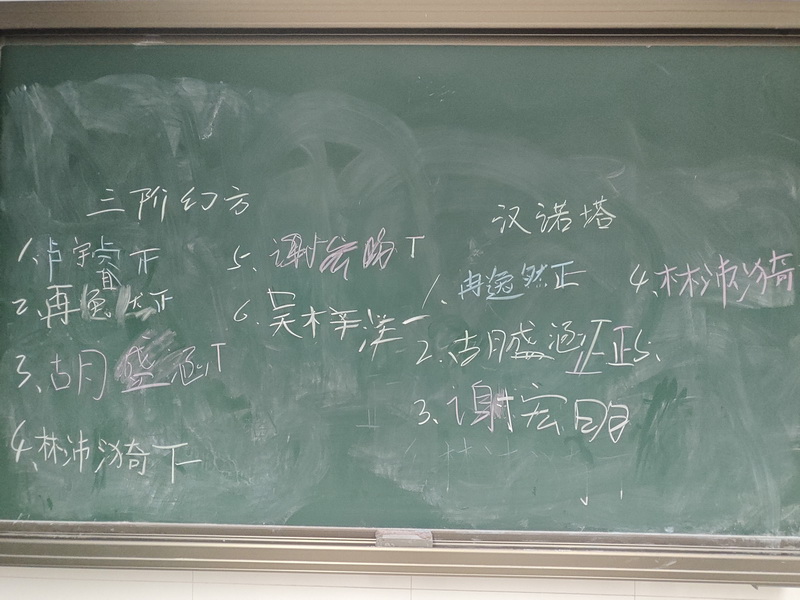 三阶幻方
1.卢宇賫正
2.再逸然正
3.胡盛涵T
4.林沛漪下
5.谢宏明T
6.吴梓洋一
汉诺塔
1.冉逸然正
2.胡盛涵正正
3.谢宏明
4.林沛漪
5.